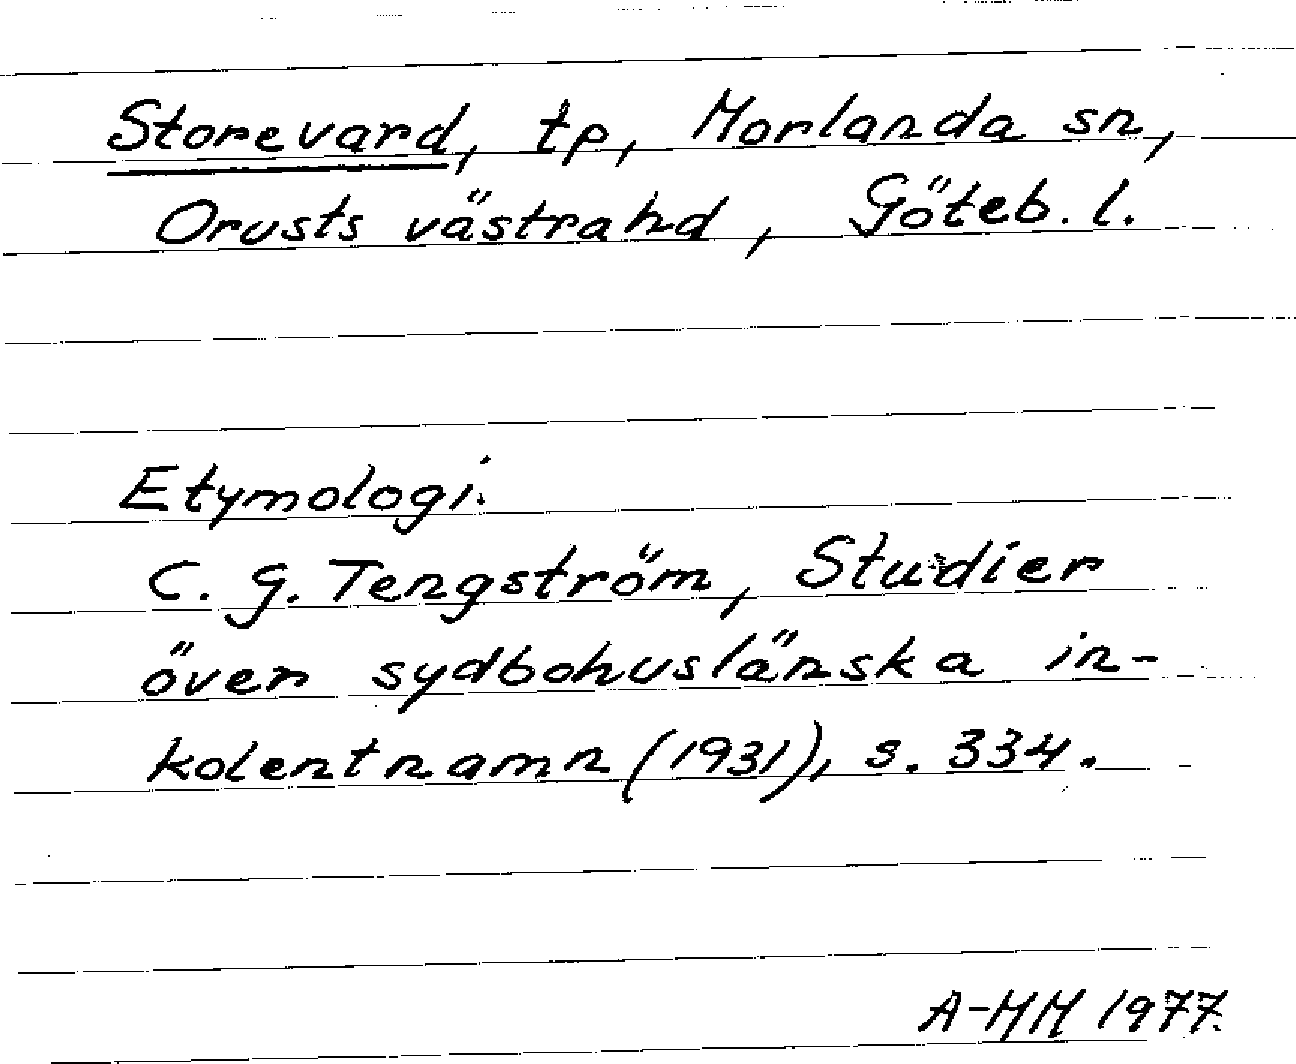 Storevard, tp, Morlanda sn,
Orusts västra hd, Göteb. l.
Etymologi:
C. G. Tengström, Studier
över sydbohuslänska in-
kolentnamn (1931), s. 334.
A-MM 1977.